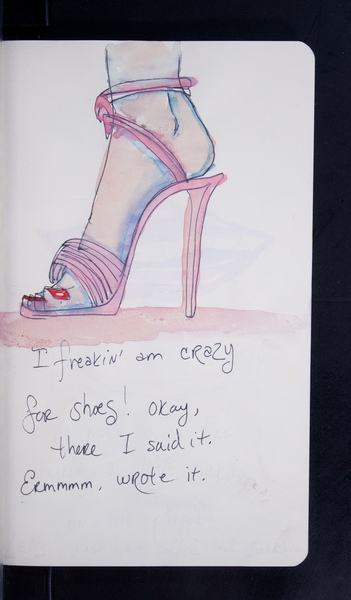 I freakin' am CRAZY
for shoes! Okay,
there I said it.
Ermmmm, wrote it.